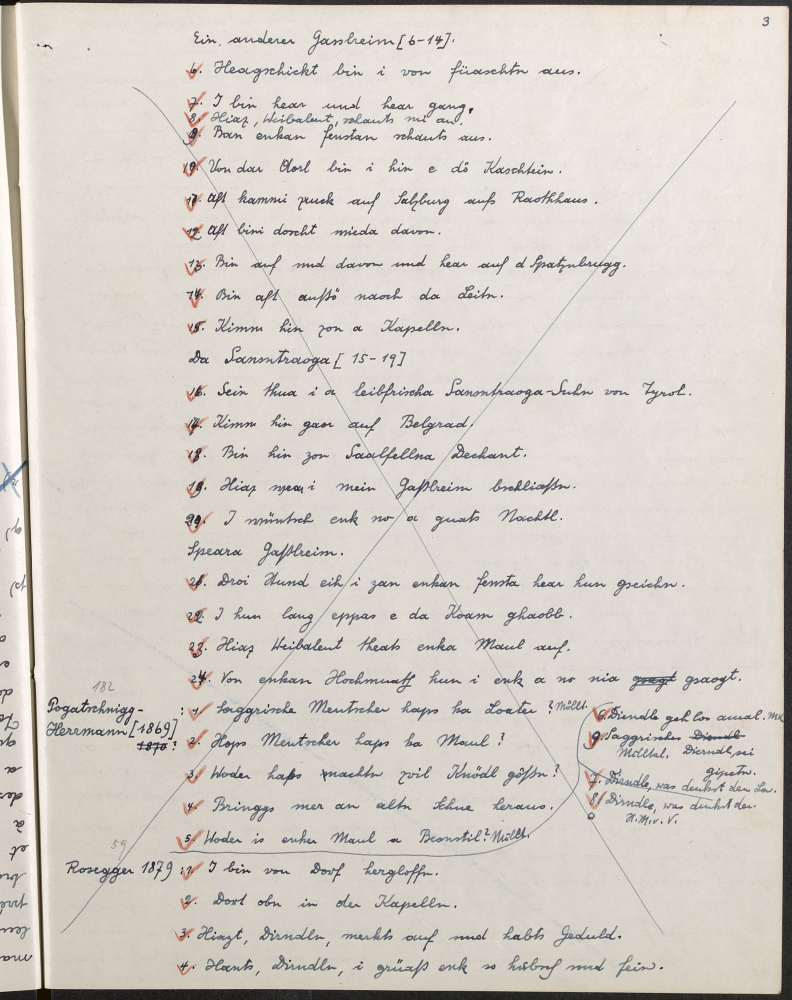 3
Ein anderer Gasslreim [6-14].
6. Heagschickt bin i von füraschtn aus.
7. I bin hear und hear gang.
8. Hiaz, Weibaleut, schauts mi an.
9. Ban enkan fenstan schauts aus.
10. Von dar Aorl bin i hin e dö Kaschtein.
11. Aft kammi zruck auf Salzburg aufs Raothhaus.
12. Aft bini doscht mieda davon.
13. Bin auf und davon und hear auf d Spatznbrugg.
14. Bin aft außö naoch da Leitn.
15. Kimm hin zon a Kapelln.
Da Sansntraoga [15-19]
16. Sein thua i a leibfrischa Sansntraoga-Suhn von Tyrol.
17. Kimm hin gaor auf Belgrad.
18. Bin hin zon Saalfellna Dechant.
19. Hiaz wear i mein Gaßlreim bschliaßn.
20. I wüntsch enk no a guats Nachtl.
Speara Gaßlreim.
21. Droi Stund eih i zan enkan fensta hear hun gseichn.
22. I hun lang eppas e da Hoam ghaobb.
23. Hiaz Weibaleut theats enka Maul auf.
24. Von enkan Hochmuatt hun i enk a no nia gsaogt.
182
Pogatschnigg-
Herrmann [1869]
1870?
: 1. Saggrische Mentscher haps ka Loater? Mölltl.
2. Hops Mentscher haps ka Maul?
3. Woder habs nachtn zvil Knödl gößn?
4. Bringgs mer an altn Schue heraus.
5. Woder is enker Maul a Beonstil? Mölltl.
6. Diendle geh los amal.
9. Saggrisches Diendl
Mölltal. Dierndl, sei
gipetn.
7. Dirndle, was denkst den La.
8. Dirndle, was denkst dei
H.M.v.V.
59
Rosegger 1879 : 1. I bin von Dorf hergloffn.
2. Dort obn in der Kapelln.
3. Hiazt, Dirndln, merkts auf und habts Geduld.
4. Hants, Dirndln, i grüaß enk so hübsch und fein.